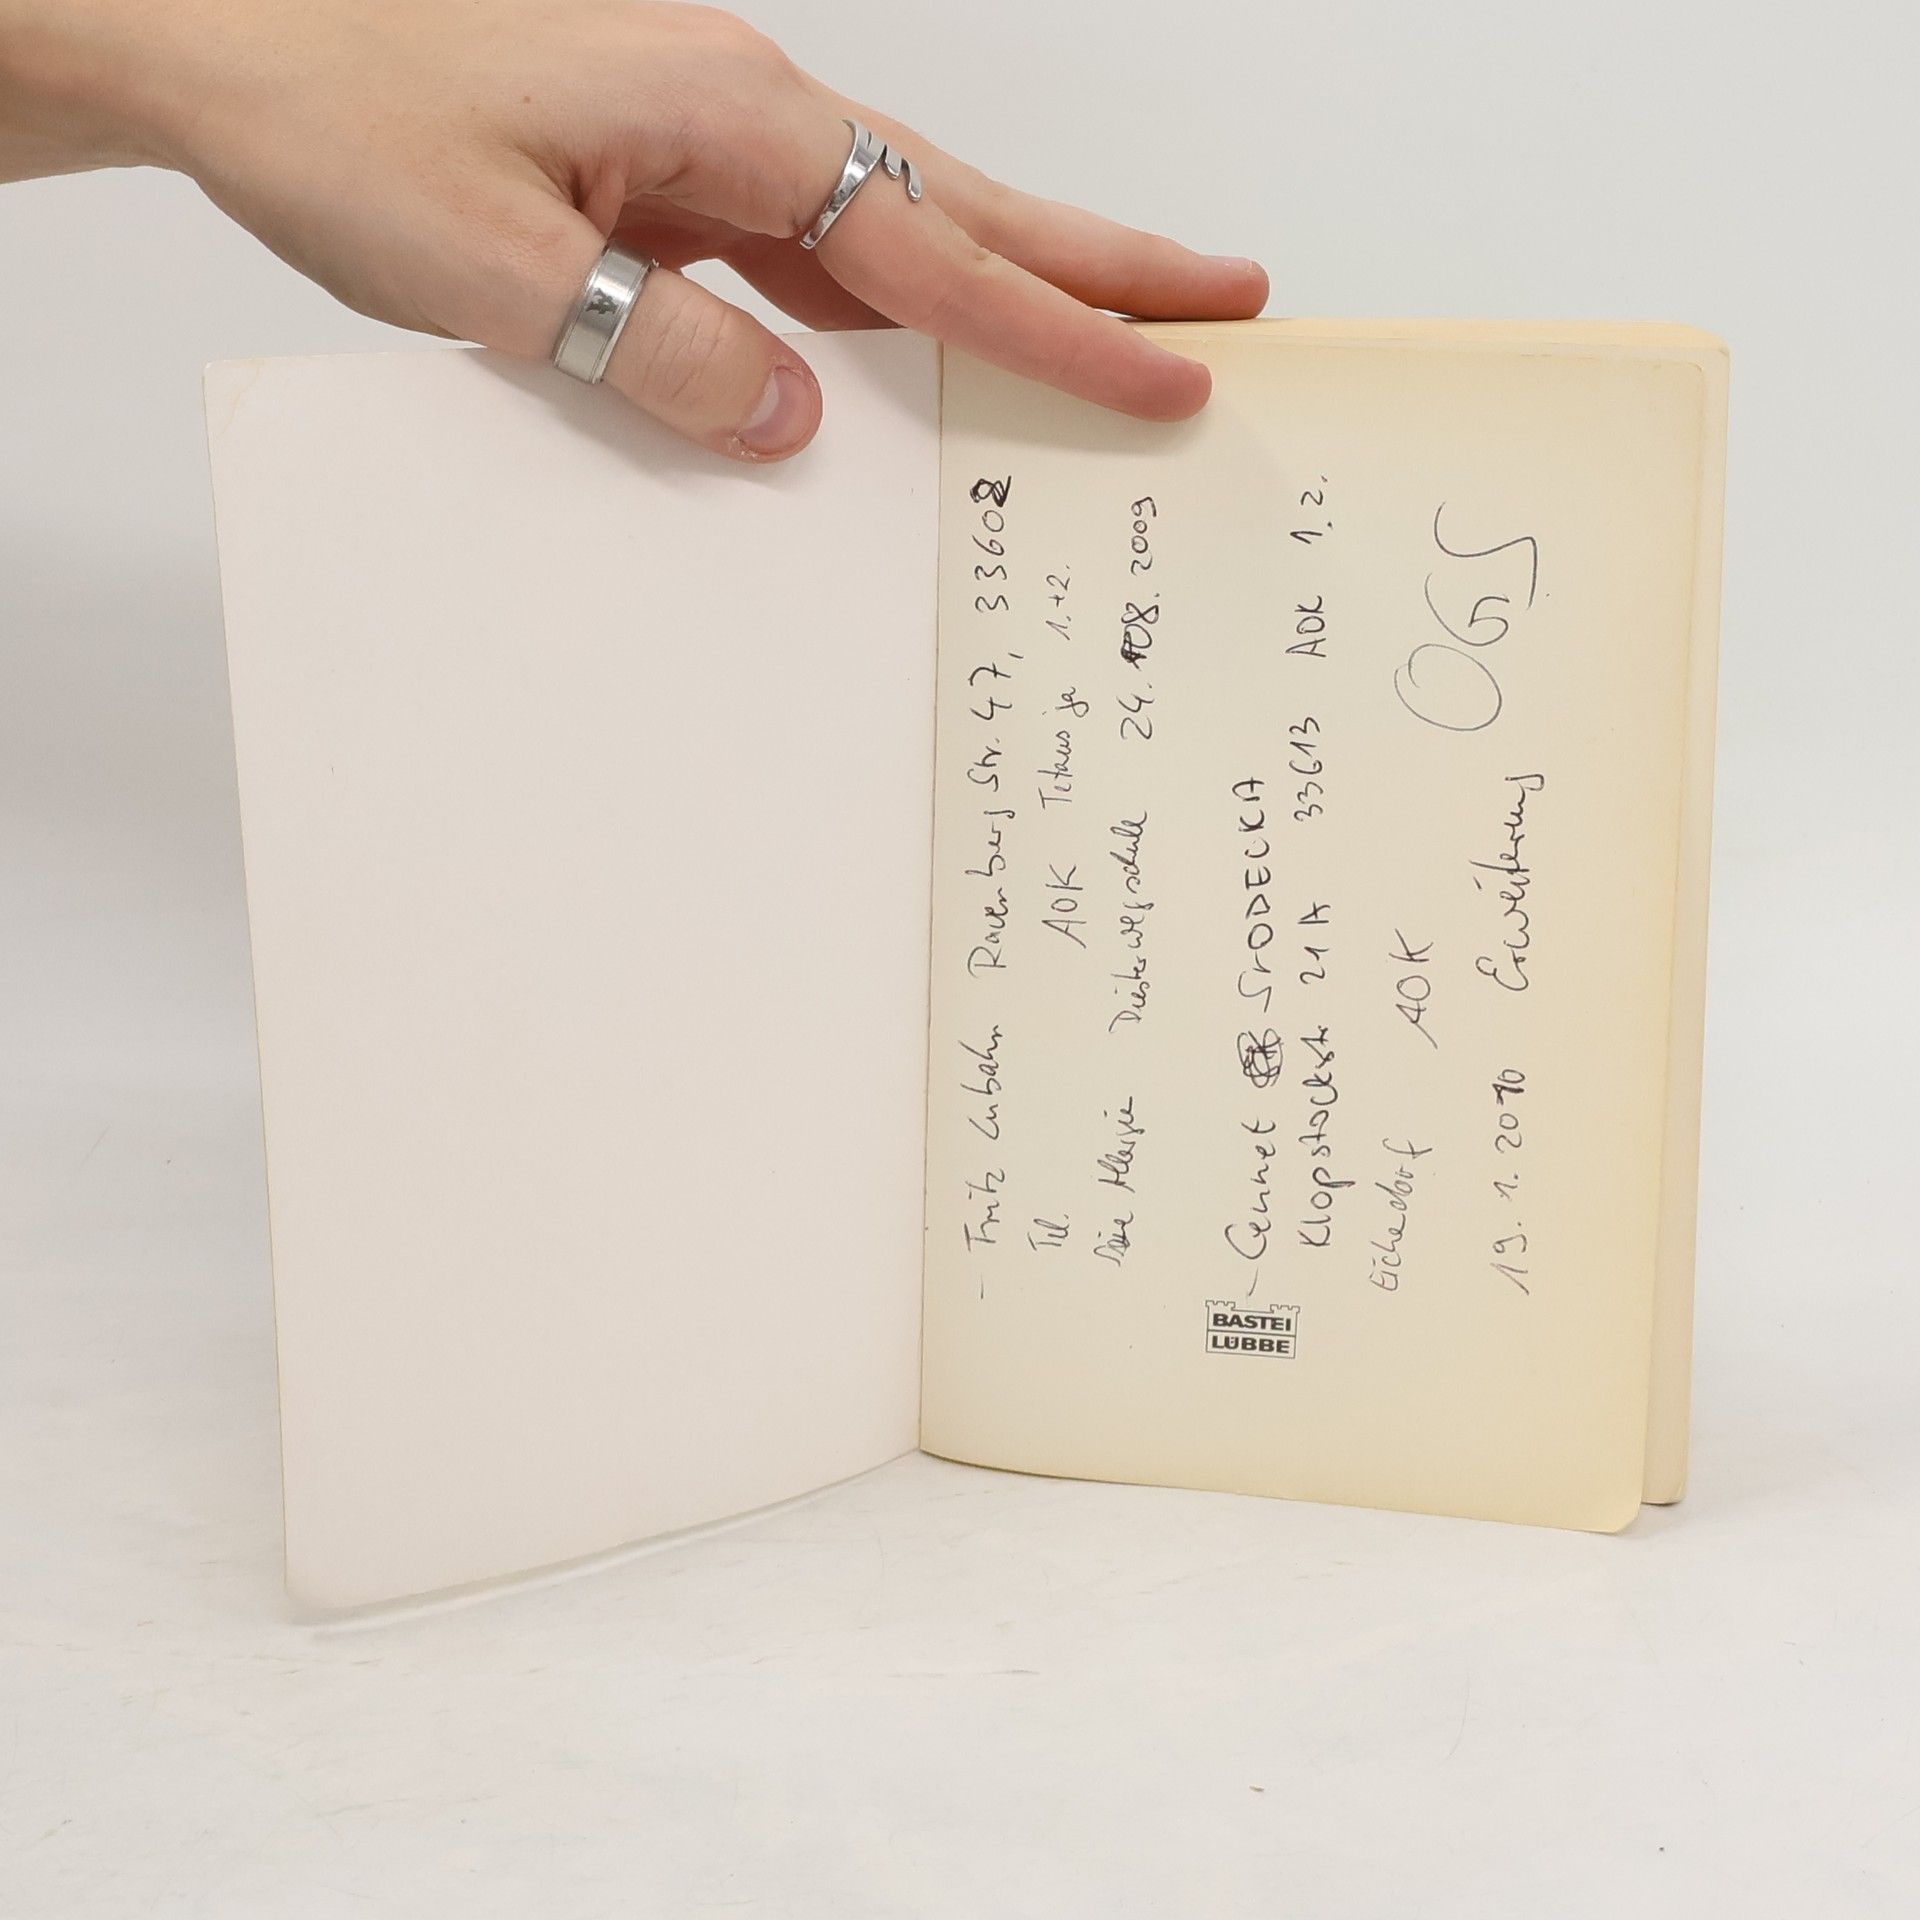 - Fritz Lubahn Ravensberg Str. 47, 33602
Tel. AOK Tetanus ja 1.+2.
Allergie Diesterwegschule 24.08.2009
- Cennet SRODECKA
Klopstockstr. 21A 33613 AOK 1.2.
Eichedorf AOK OGS
19.1.2010 Erweiterung
BASTEI
LÜBBE